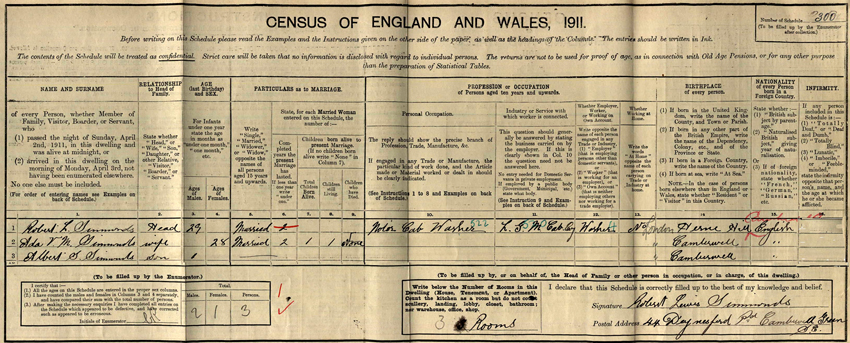 CENSUS OF ENGLAND AND WALES, 1911.
Number of Schedule 300
(To be filled up by the Enumerator after collection.)
Before writing on this Schedule please read the Examples and the Instructions given on the other side of the paper, as well as the headings of the Columns. The entries should be written in Ink.
The contents of the Schedule will be treated as confidential. Strict care will be taken that no information is disclosed with regard to individual persons. The returns are not to be used for proof of age, as in connection with Old Age Pensions, or for any other purpose
than the preparation of Statistical Tables.
NAME AND SURNAME
RELATIONSHIP to Head of Family.
AGE (last Birthday) and SEX.
PARTICULARS as to MARRIAGE.
PROFESSION or OCCUPATION of Persons aged ten years and upwards.
BIRTHPLACE of every person.
NATIONALITY of every Person born in a Foreign Country.
INFIRMITY.
of every Person, whether Member of Family, Visitor, Boarder, or Servant, who
(1) passed the night of Sunday, April 2nd, 1911, in this dwelling and was alive at midnight, or
(2) arrived in this dwelling on the morning of Monday, April 3rd, not having been enumerated elsewhere.
No one else must be included.
(For order of entering names see Examples on back of Schedule.)
State whether "Head," or "Wife," "Son," "Daughter," or other Relative, "Visitor," "Boarder," or "Servant."
For Infants under one year state the age in months as "under one month," "one month," etc.
Ages of Males.
Ages of Females.
Write "Single," "Married," "Widower," or "Widow," opposite the names of all persons aged 15 years and upwards.
State, for each Married Woman entered on this Schedule, the number of:—
Completed years the present Marriage has lasted. If less than one year write "under one."
Children born alive to present Marriage. (If no children born alive write "None" in Column 7).
Total Children Born Alive.
Children still Living.
Children who have Died.
Personal Occupation.
The reply should show the precise branch of Profession, Trade, Manufacture, &c.
If engaged in any Trade or Manufacture, the particular kind of work done, and the Article made or Material worked or dealt in should be clearly indicated.
(See Instructions 1 to 8 and Examples on back of Schedule.)
Industry or Service with which worker is connected.
This question should generally be answered by stating the business carried on by the employer. If this is clearly shown in Col. 10 the question need not be answered here.
No entry needed for Domestic Servants in private employment.
If employed by a public body (Government, Municipal, etc.) state what body.
(See Instruction 9 and Examples on back of Schedule.)
Whether Employer, Worker, or Working on Own Account.
Whether Working at Home.
(1) If born in the United Kingdom, write the name of the County, and Town or Parish.
(2) If born in any other part of the British Empire, write the name of the Dependency, Colony, etc., and of the Province or State.
(3) If born in a Foreign Country, write the name of the Country.
(4) If born at sea, write "At Sea."
NOTE.—In the case of persons born elsewhere than in England or Wales, state whether "Resident" or "Visitor" in this Country.
1 Robert L Simmonds Head 29 Married Motor Cab Washer Worker No London Herne Hill English
2 Ada V. M. Simmonds wife 28 Married 2 1 1 None " Camberwell "
3 Albert S. Simmonds son 1 " Camberwell "
(To be filled up by the Enumerator.)
I certify that:—
(1) All the ages on this Schedule are entered in the proper sex columns.
(2) I have counted the males and females in Columns 3 and 4 separately, and have compared their sum with the total number of persons.
(3) After making the necessary enquiries I have completed all entries on the Schedule which appeared to be defective, and have corrected such as appeared to be erroneous.
Initials of Enumerator
Total.
Males. Females. Persons.
2 1 3
(To be filled up by, or on behalf of, the Head of Family or other person in occupation, or in charge, of this dwelling.)
Write below the Number of Rooms in this Dwelling (House, Tenement, or Apartment). Count the kitchen as a room but do not count scullery, landing, lobby, closet, bathroom; nor warehouse, office, shop.
3 Rooms
I declare that this Schedule is correctly filled up to the best of my knowledge and belief.
Signature Robert Lewis Simmonds
Postal Address 44 Daynesford Camberwell Green S.E.